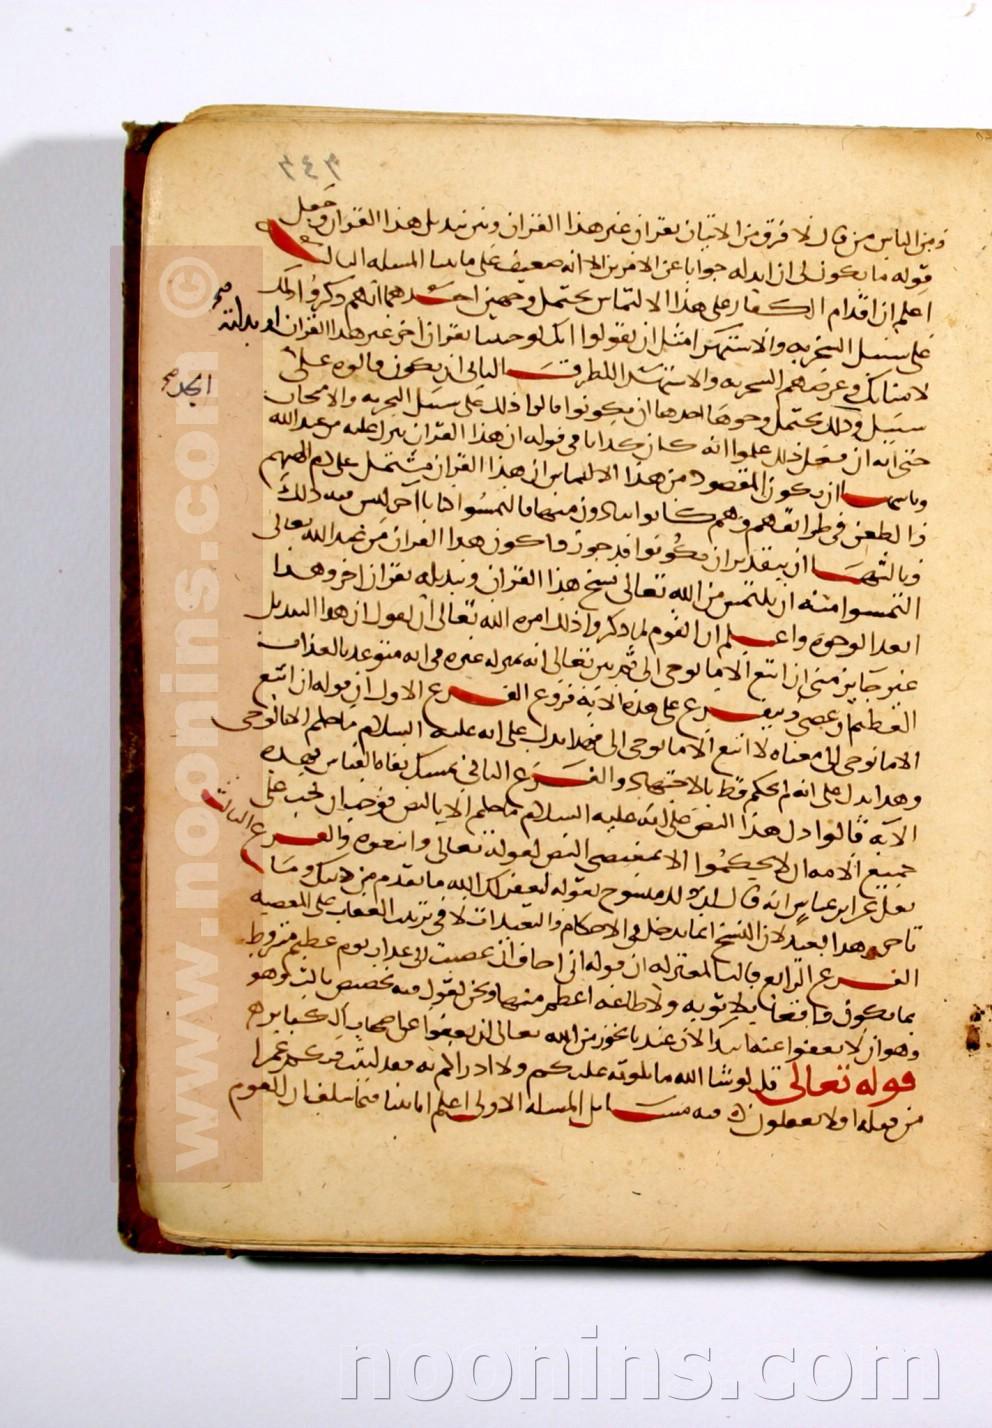 ومن الناس من قال لا فرق بين الاتيان بقران غير هذا القران وبين تبديل هذا القران وجعل
قوله ما يكون لي ان ابدله جوابا عن الامرين الا انه ضعيف على ما بينا المسله الثالثه
اعلم ان اقدام الكفار على هذا الالتماس يحتمل وجهين احدهما انهم ذكروا ذلك
على سبيل السخريه والاستهزا مثل ان يقولوا انك لو جيتنا بقران اخر غير هذا القران او بدلته
لامنا بك وغرضهم السخريه والاستهزا الطريق الثاني ان يكون قالوه على
سبيل وذلك يحتمل وجوها احدها ان يكونوا قالوا ذلك على سبيل التجربه والامتحان
حتى انه ان فعل ذلك علموا انه كان كذابا في قوله ان هذا القران نزل عليه من عند الله
وثانيها ان يكون المقصود من هذا الالتماس ان هذا القران مشتمل على ذم الهتهم
والطعن في طرايقهم وهم كانوا يتاذون منها فالتمسوا كتابا اخر ليس فيه ذلك
وثالثها ان بتقدير ان يكونوا قد جوزوا كون هذا القران من عند الله تعالى
التمسوا منه ان يلتمس من الله تعالى نسخ هذا القران وتبديله بقران اخر وهذا
ابعد الوجوه واعلم ان القوم لما ذكروا ذلك امره الله تعالى ان يقول ان هذا التبديل
غير جايز مني ان اتبع الا ما يوحى الي ثم بين تعالى انه بمنزله غيره في انه متوعد بالعذاب
العظيم ان عصى ويتفرع على هذه الايه فروع الفرع الاول ان قوله ان اتبع
الا ما يوحى الي معناه لا اتبع الا ما يوحى الي فهذا يدل على انه عليه السلام ما حكم الا بالوحي
وهذا يدل على انه لم يحكم قط بالاجتهاد والفرع الثاني تمسك نفاه القياس بهذه
الايه قالوا دل هذا النص على انه عليه السلام ما حكم الا بالنص فوجب ان يجب على
جميع الامه ان لا يحكموا الا بمقتضى النص لقوله تعالى واتبعوه والفرع الثالث
نقل عن ابن عباس انه قال ان ذلك منسوخ بقوله ليغفر لك الله ما تقدم من ذنبك وما
تاخر وهذا بعيد لان النسخ انما يدخل في الاحكام والتعبدات لا في ترتيب العقاب على المعصيه
الفرع الرابع قالت المعتزله ان قوله اني اخاف ان عصيت ربي عذاب يوم عظيم مشروط
بما يكون واقعا بلا توبه ولا طاعه اعظم منها ونحن نقول فيه تخصيص ثالث وهو
وهو ان لا يعفوا عنه ابتدا لان عندنا يجوز من الله تعالى ان يعفوا عن اصحاب الكباير
قوله تعالى قل لو شا الله ما تلوته عليكم ولا ادراكم به فقد لبثت فيكم عمرا
من قبله افلا تعقلون فيه مسايل المسله الاولى اعلم انا بينا فيما سلف ان القوم
صح
الجد صح
www.noonins.com ©
noonins.com